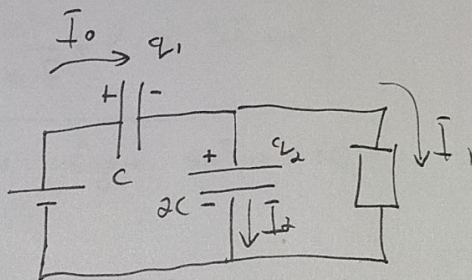 I₀
q₁
+ -
C
+ q₂
2C - I₂
I₁